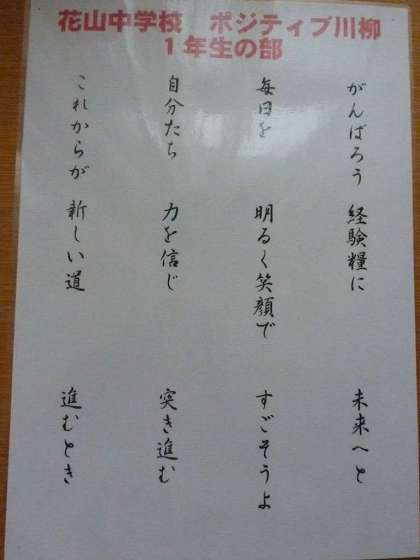 花山中学校 ポジティブ川柳
1年生の部
がんばろう 経験糧に 未来へと
毎日を 明るく笑顔で すごそうよ
自分たち 力を信じ 突き進む
これからが 新しい道 進むとき